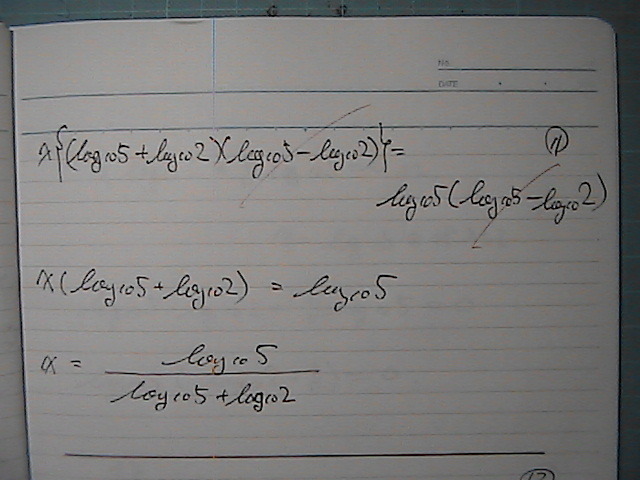 No.
DATE
x{(log₁₀5 + log₁₀2)(log₁₀5 - log₁₀2)} =
⑪
log₁₀5(log₁₀5 - log₁₀2)
x(log₁₀5 + log₁₀2) = log₁₀5
x = log₁₀5
log₁₀5 + log₁₀2